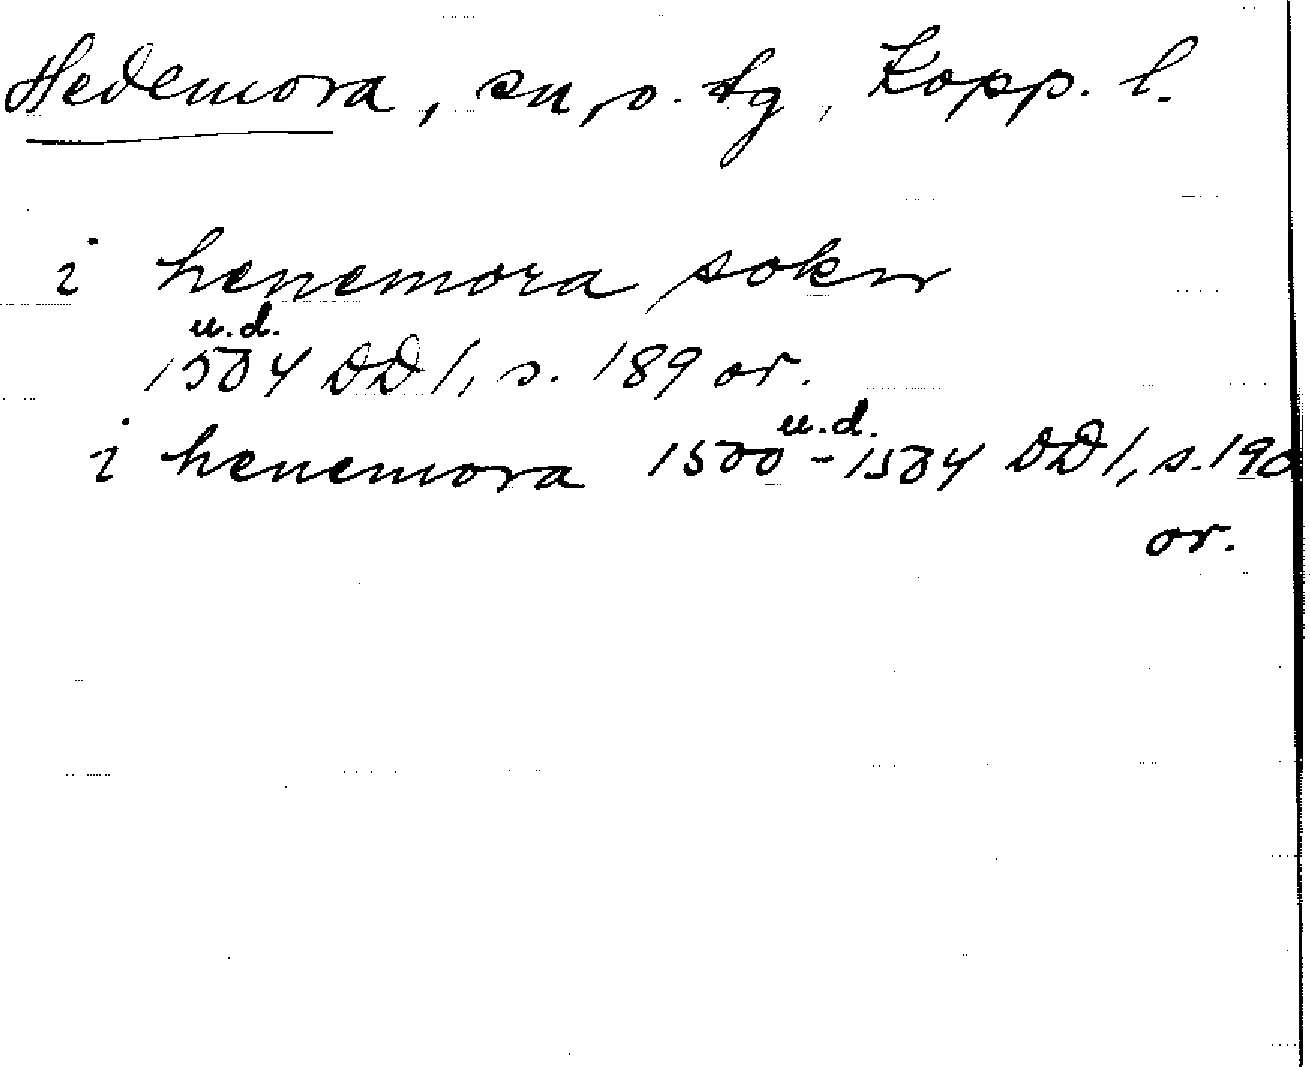 Hedemora, sn, o. tg, Kopp. l.
i henemora sokn
u.d.
1504 DD 1, s. 189 or.
i henemora 1500 - 1504 u.d. DD 1, s. 190
or.